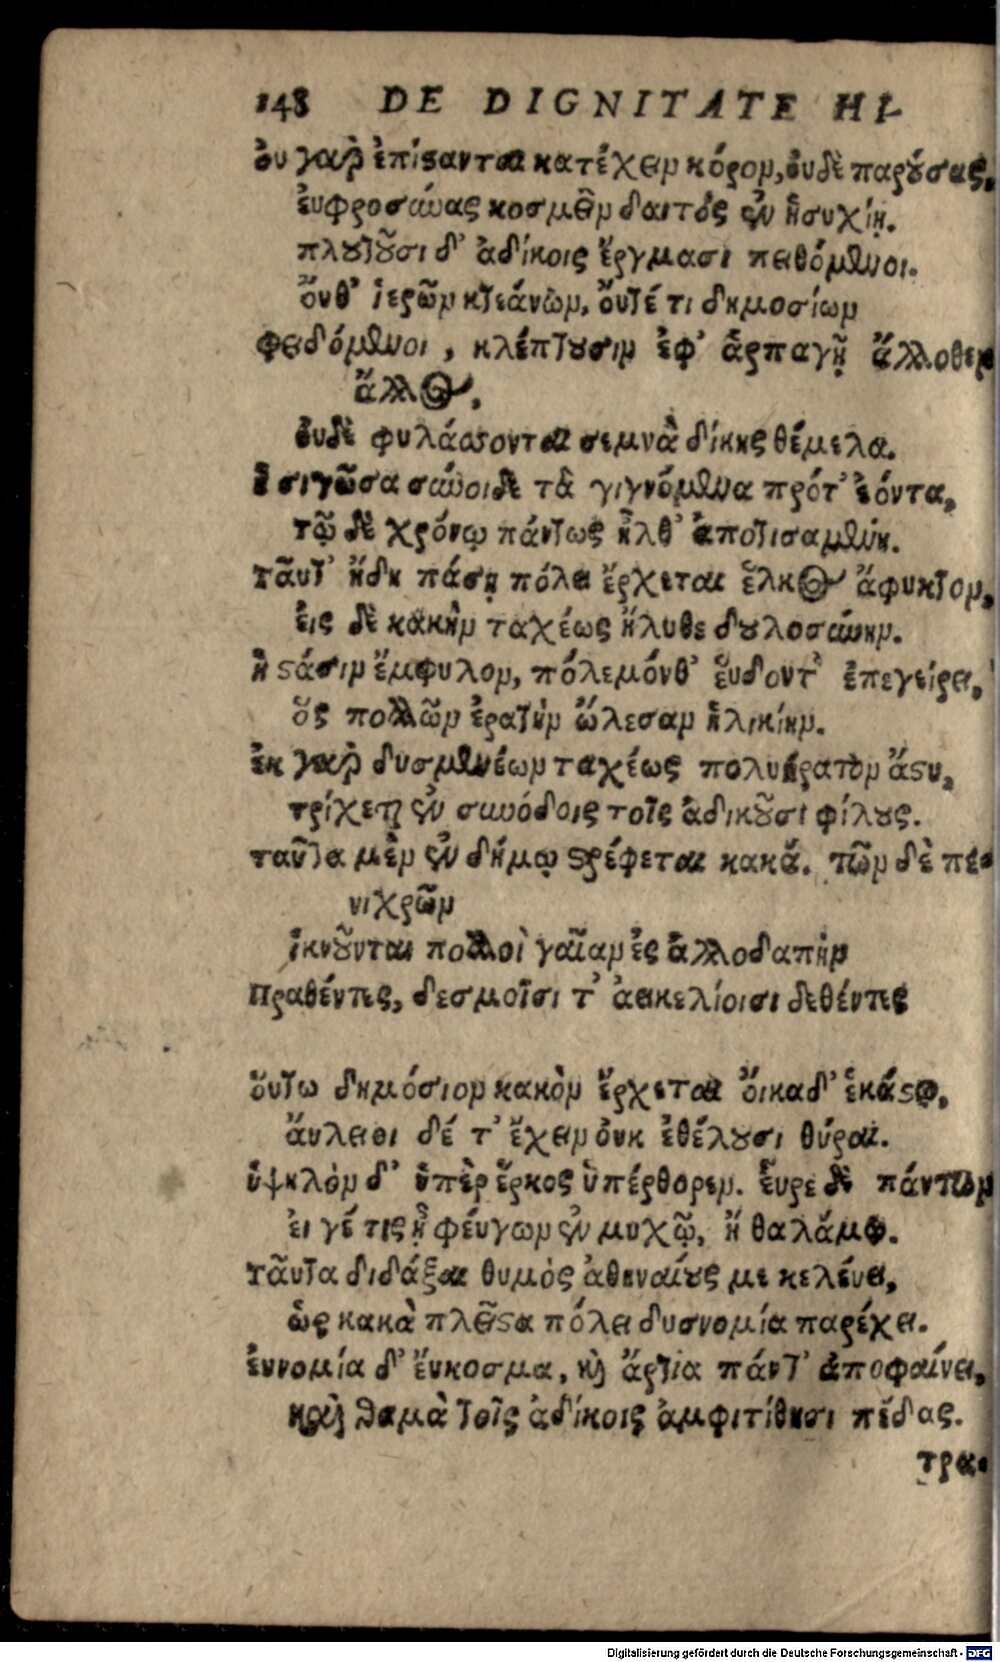 148 DE DIGNITATE HI-
ὀυ γαρ̀ ἐπίςανται κατέχειν κόρον, ὀυδὲ παρούσας,
ἐυφροσύνας κοσμεῖν δαιτὸς ἐν ἡσυχίῃ.
πλουτοῦσι δ' ἀδίκοις ἔργμασι πειθόμενοι.
ὄυνθ' ἱερῶν κτεάνων, ὄυτέ τι δημοσίων
φειδόμενοι, κλέπτουσιν ἐφ' ἁρπαγῇ ἄλλοθεν
ἄλλος,
ὀυδὲ φυλάσσονται σεμνὰ δίκης θέμελα.
ἣ σιγῶσα σύνοιδε τὰ γιγνόμενα πρότ' ἐόντα,
τῷ δὲ χρόνῳ πάντως ἦλθ' ἀποτισαμένη.
ταῦτ' ἤδη πάσῃ πόλει ἔρχεται ἕλκος ἄφυκτον,
ἐις δὲ κακὴν ταχέως ἤλυθε δουλοσύνην.
ἢ ςάσιν ἔμφυλον, πόλεμόνθ' ἕυδοντ' ἐπεγείρει,
ὃς πολλῶν ἐρατὴν ὤλεσαν ἡλικίην.
ἐκ γαρ̀ δυσμενέων ταχέως πολυήρατον ἄςυ,
τρίχεται ἐν συνόδοις τοῖς ἀδικοῦσι φίλους.
ταῦτα μὲν ἐν δήμῳ ςρέφεται κακά. τῶν δὲ πε-
νιχρῶν
ἱκνοῦνται πολλοὶ γαῖαν ἐς ἀλλοδαπὴν
Πραθέντες, δεσμοῖσι τ' ἀεικελίοισι δεθέντες
ὅυτω δημόσιον κακὸν ἔρχεται ὄικαδ' ἑκάςῳ,
ἄυλειοι δέ τ' ἔχειν ὀυκ ἐθέλουσι θύραι.
ὑψηλὸν δ' ὑπὲρ ἕρκος ὑπέρθορεν. ἕυρε δὲ πάντων
ἐι γέ τις ᾖ φέυγων ἐν μυχῷ, ἢ θαλάμῳ.
ταῦτα διδάξαι θυμὸς ἀθηναίους με κελέυει,
ὡς κακὰ πλεῖςα πόλει δυσνομία παρέχει.
ἐυνομία δ' ἔυκοσμα, καὶ ἄρτια πάντ' ἀποφαίνει,
καὶ θαμὰ τοῖς ἀδίκοις ἀμφιτίθησι πέδας.
τρα-
Digitalisierung gefördert durch die Deutsche Forschungsgemeinschaft - DFG